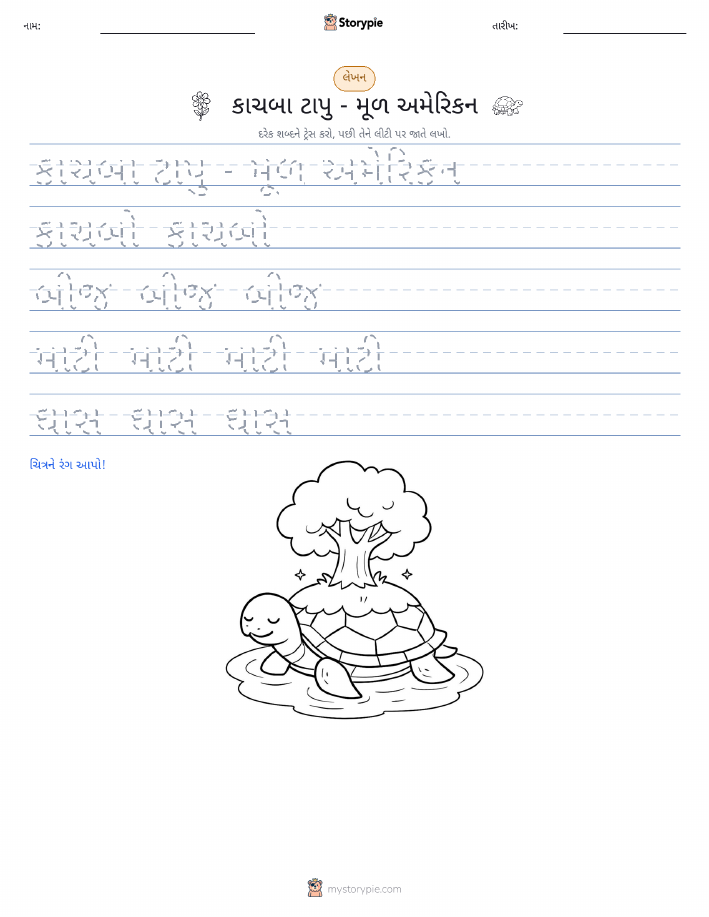 નામ:
Storypie
તારીખ:
લેખન
કાચબા ટાપુ - મૂળ અમેરિકન
દરેક શબ્દને ટ્રેસ કરો, પછી તેને લીટી પર જાતે લખો.
કાચબા ટાપુ - મૂળ અમેરિકન
કાચબો કાચબો
બીજ બીજ બીજ
માટી માટી માટી માટી
ઘાસ ઘાસ ઘાસ
ચિત્રને રંગ આપો!
mystorypie.com